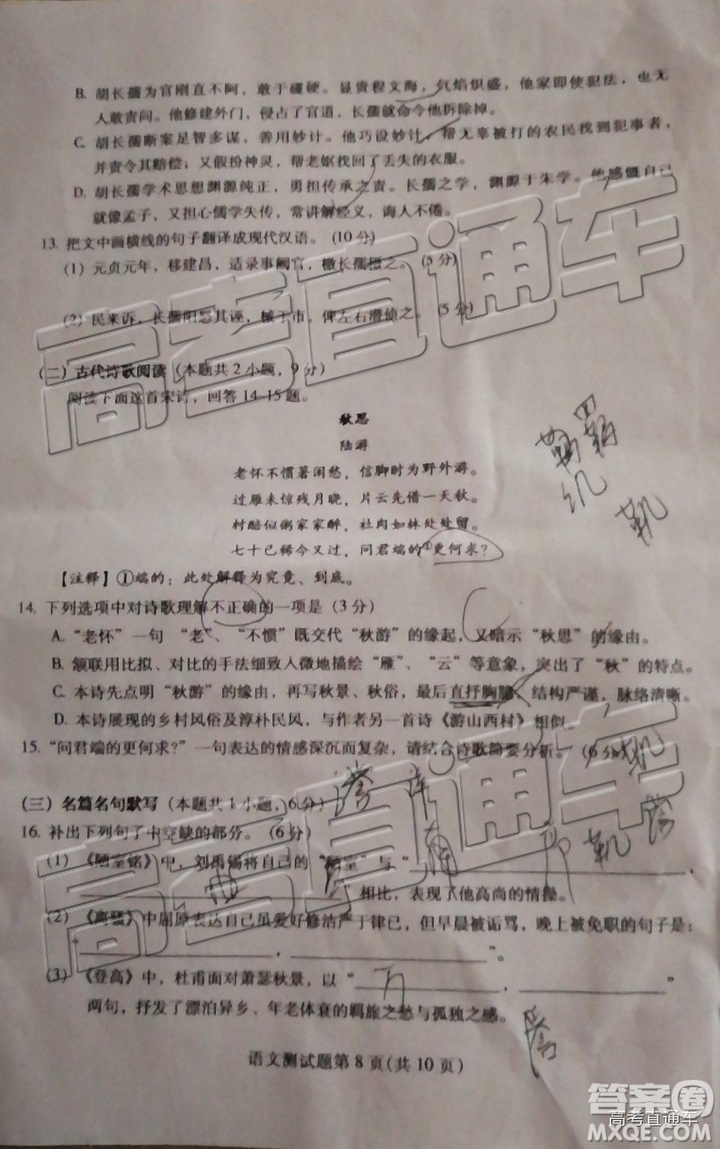 B. 胡长孺为官刚直不阿，敢于碰硬。显贵程文海，气焰炽盛，他家即使犯法，也无
人敢责问。他修建外门，侵占了官道，长孺就命令他拆除掉。
C. 胡长孺断案足智多谋，善用妙计。他巧设妙计，帮无辜被打的农民找到加害者，
并责令其赔偿；又假扮神灵，帮老妪找回了丢失的衣服。
D. 胡长孺学术思想渊源纯正，勇担传承之责。长孺之学，渊源于朱学。他感慨
就像孟子，又担心儒学失传，常讲解经义，诲人不倦。
13. 把文中画横线的句子翻译成现代汉语。（10 分）
（1）元贞元年，移建昌，适录事阙官，檄长孺摄之。（5 分）
（2）民来诉，长孺阳怒其诬，械于市，俾左右潜侦之。（5 分）
（二）古代诗歌阅读（本题共 2 小题，9 分）
阅读下面这首宋诗，回答 14-15 题。
秋思
陆游
老怀不惯著闲愁，信脚时为野外游。
过雁未惊残月晓，片云先借一天秋。
村醅似粥家家醉，社肉如林处处留。
七十已稀今又过，问君端的①更何求？
【注释】①端的：此处解释为究竟、到底。
14. 下列选项中对诗歌理解不正确的一项是（3 分）
A.“老怀”一句 “老”、“不惯”既交代“秋游”的缘起，又暗示“秋思”的缘由。
B. 颔联用比拟、对比的手法细致入微地描绘“雁”、“云”等意象，突出了“秋”的特点。
C. 本诗先点明“秋游”的缘由，再写秋景、秋俗，最后直抒胸臆，结构严谨，脉络清晰。
D. 本诗展现的乡村风俗及淳朴民风，与作者另一首诗《游山西村》相似。
15.“问君端的更何求？”一句表达的情感深沉而复杂，请结合诗歌简要分析。（6 分）
（三）名篇名句默写（本题共 1 小题，6 分）
16. 补出下列句子中空缺的部分。（6 分）
（1）《陋室铭》中，刘禹锡将自己的“陋室”与“
相比，表现了他高尚的情操。
（2）《离骚》中屈原表达自己虽爱好修洁严于律己，但早晨被诟骂，晚上被免职的句子是：
“ ， ”。
（3）《登高》中，杜甫面对萧瑟秋景，以“ ， ”
两句，抒发了漂泊异乡、年老体衰的羁旅之愁与孤独之感。
语文测试题第 8 页(共 10 页)
高考直通车
高考直通车
答案圈
高考直通车
MXQE.COM